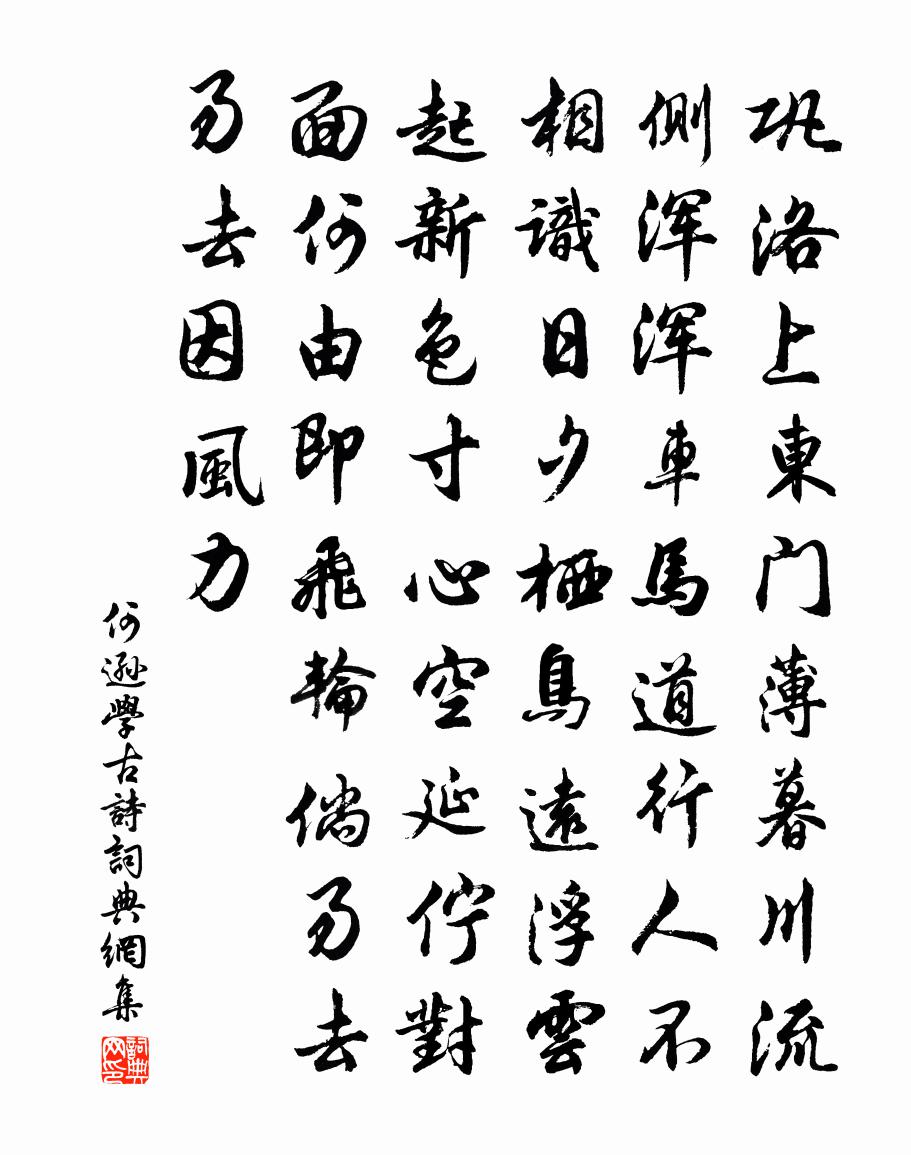 巩洛上東门薄暮川流
側浑浑車馬道行人不
相識日夕栖鳥遠浮雲
起新色寸心空延佇對
面何由即飛輪倘易去
易去因風力
何遜學古詩詞典網集
詞典网印